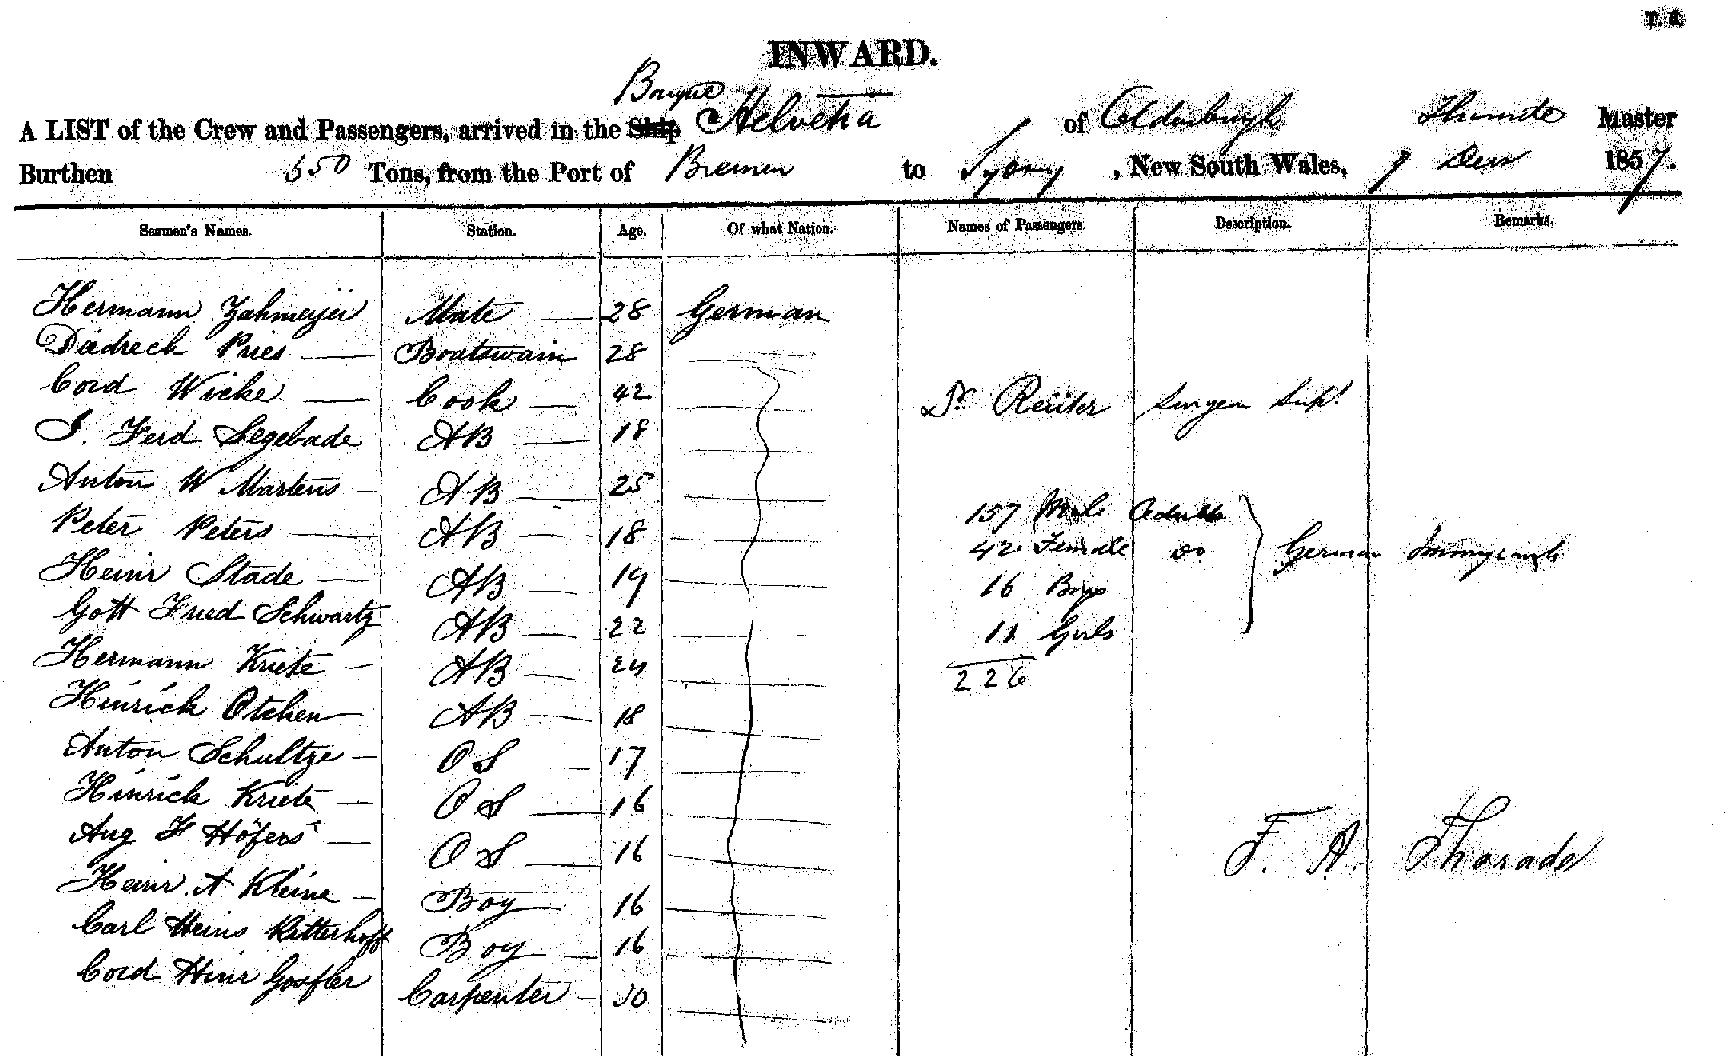 INWARD.
Barque
A LIST of the Crew and Passengers, arrived in the Ship Helvetia of Oldenburgh Master
Burthen 550 Tons, from the Port of Bremen to Sydney, New South Wales, 9 1857.
Seamen's Names. Station. Age. Of what Nation. Names of Passengers. Description. Remarks.
Hermann Zahmeijer Mate 28 German
Diedreck Pries Boatswain 28
Cord Wicke Cook 42
Dr Reuter Surgeon Supt
J. Ferd Segebade AB 18
Anton W Martens AB 25
157 Male Adults
Peter Peters AB 18
42 Female Do German Immigrants
Heinr Stade AB 19
16 Boys
Gott Fried Schwartz AB 22
11 Girls
Hermann Kriete AB 24
226
Hinrick Otchen AB 18
Anton Schultze OS 17
Hinrick Kriete OS 16
Aug F Höfers OS 16
F. A. Thorade
Heinr. A Kleine Boy 16
Carl Heins Ritterhoff Boy 16
Cord Hinr Carpenter 30